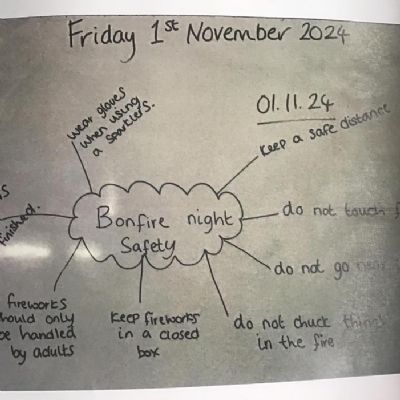 Friday 1st November 2024
01.11.24
wear gloves
when using
a sparklers.
Keep a safe distance
Bonfire night
Safety
finished.
do not touch
do not go near
fireworks
should only
be handled
by adults
Keep fireworks
in a closed
box
do not chuck things
in the fire